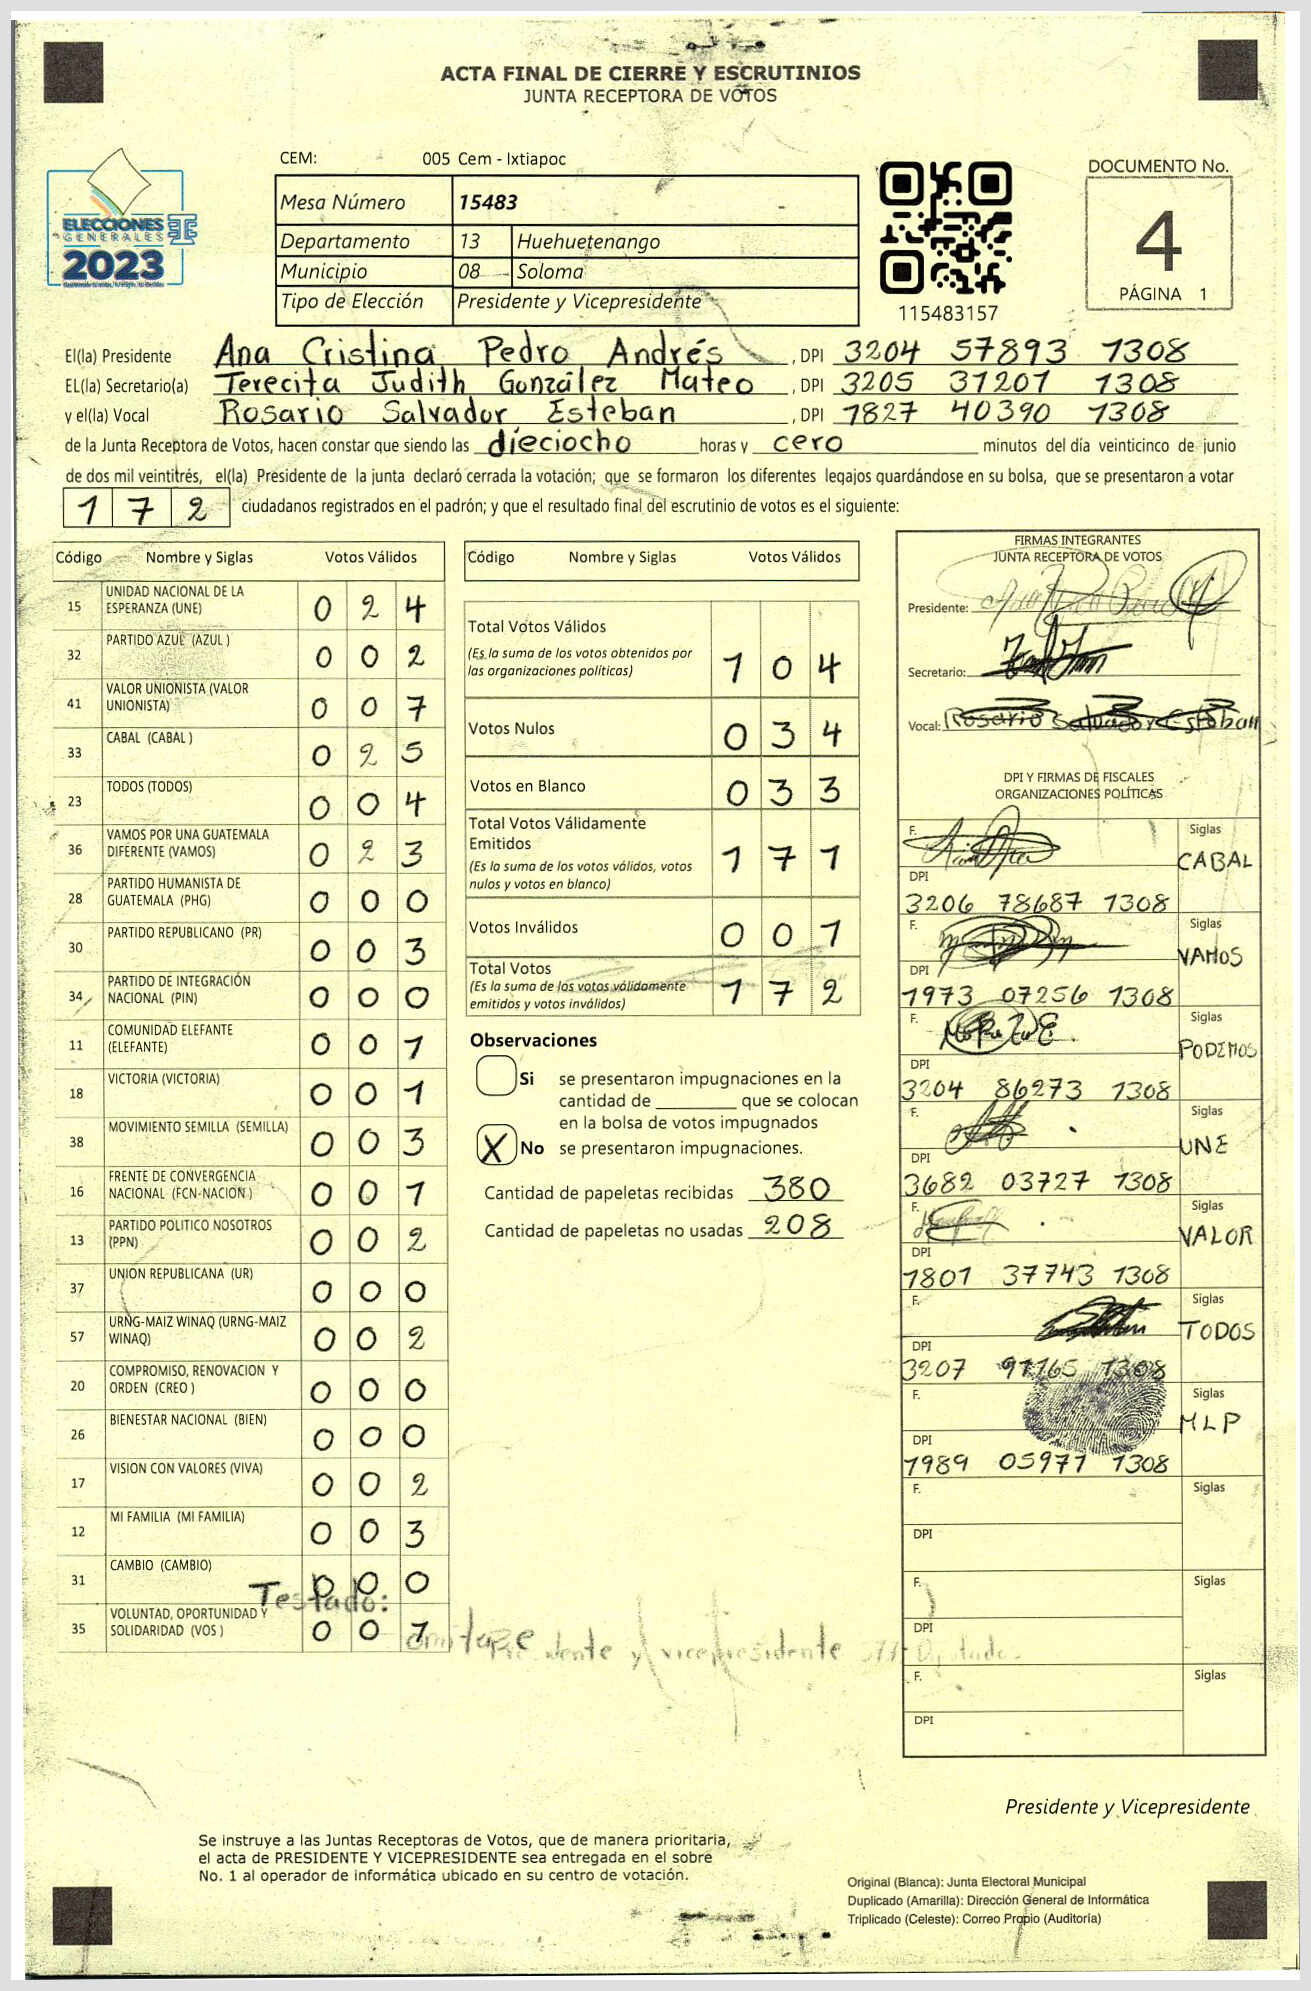 ACTA FINAL DE CIERRE Y ESCRUTINIOS
JUNTA RECEPTORA DE VOTOS
CEM: 005 Cem - Ixtiapoc
ELECCIONES
GENERALES
2023
Mesa Número 15483
Departamento 13 Huehuetenango
Municipio 08 Soloma
Tipo de Elección Presidente y Vicepresidente
115483157
DOCUMENTO No.
4
PÁGINA 1
El(la) Presidente Ana Cristina Pedro Andrés , DPI 3204 57893 1308
EL(la) Secretario(a) Terecita Judith González Mateo , DPI 3205 31201 1308
y el(la) Vocal Rosario Salvador Esteban , DPI 1827 40390 1308
de la Junta Receptora de Votos, hacen constar que siendo las dieciocho horas y cero minutos del día veinticinco de junio
de dos mil veintitrés, el(la) Presidente de la junta declaró cerrada la votación; que se formaron los diferentes legajos guardándose en su bolsa, que se presentaron a votar
172 ciudadanos registrados en el padrón; y que el resultado final del escrutinio de votos es el siguiente:
Código Nombre y Siglas Votos Válidos
15 UNIDAD NACIONAL DE LA
ESPERANZA (UNE) 0 2 4
32 PARTIDO AZUL (AZUL ) 0 0 2
41 VALOR UNIONISTA (VALOR
UNIONISTA) 0 0 7
33 CABAL (CABAL ) 0 2 5
23 TODOS (TODOS) 0 0 4
36 VAMOS POR UNA GUATEMALA
DIFERENTE (VAMOS) 0 2 3
28 PARTIDO HUMANISTA DE
GUATEMALA (PHG) 0 0 0
30 PARTIDO REPUBLICANO (PR) 0 0 3
34 PARTIDO DE INTEGRACIÓN
NACIONAL (PIN) 0 0 0
11 COMUNIDAD ELEFANTE
(ELEFANTE) 0 0 1
18 VICTORIA (VICTORIA) 0 0 1
38 MOVIMIENTO SEMILLA (SEMILLA) 0 0 3
16 FRENTE DE CONVERGENCIA
NACIONAL (FCN-NACION ) 0 0 1
13 PARTIDO POLITICO NOSOTROS
(PPN) 0 0 2
37 UNION REPUBLICANA (UR) 0 0 0
57 URNG-MAIZ WINAQ (URNG-MAIZ
WINAQ) 0 0 2
20 COMPROMISO, RENOVACION Y
ORDEN (CREO ) 0 0 0
26 BIENESTAR NACIONAL (BIEN) 0 0 0
17 VISION CON VALORES (VIVA) 0 0 2
12 MI FAMILIA (MI FAMILIA) 0 0 3
31 CAMBIO (CAMBIO) 0 0 0
Testado:
35 VOLUNTAD, OPORTUNIDAD Y
SOLIDARIDAD (VOS ) 0 0 1
omitase
y vicepresidente
Código Nombre y Siglas Votos Válidos
Total Votos Válidos
(Es la suma de los votos obtenidos por
las organizaciones políticas) 1 0 4
Votos Nulos 0 3 4
Votos en Blanco 0 3 3
Total Votos Válidamente
Emitidos
(Es la suma de los votos válidos, votos
nulos y votos en blanco) 1 7 1
Votos Inválidos 0 0 1
Total Votos
(Es la suma de los votos válidamente
emitidos y votos inválidos) 1 7 2
Observaciones
Si se presentaron impugnaciones en la
cantidad de ________ que se colocan
en la bolsa de votos impugnados
X No se presentaron impugnaciones.
Cantidad de papeletas recibidas 380
Cantidad de papeletas no usadas 208
FIRMAS INTEGRANTES
JUNTA RECEPTORA DE VOTOS
Presidente:
Secretario:
Vocal: Rosario Salvador Esteban
DPI Y FIRMAS DE FISCALES
ORGANIZACIONES POLÍTICAS
F. Siglas
CABAL
DPI
3206 78687 1308
F. Siglas
VAMOS
DPI
1973 07256 1308
F. Siglas
PODEMOS
DPI
3204 86273 1308
F. Siglas
UNE
DPI
3682 03727 1308
F. Siglas
VALOR
DPI
1801 37743 1308
F. Siglas
TODOS
DPI
3207 91165 1308
F. Siglas
MLP
DPI
1989 05971 1308
F. Siglas
DPI
F. Siglas
DPI
F. Siglas
DPI
Presidente y Vicepresidente
Se instruye a las Juntas Receptoras de Votos, que de manera prioritaria,
el acta de PRESIDENTE Y VICEPRESIDENTE sea entregada en el sobre
No. 1 al operador de informática ubicado en su centro de votación.
Original (Blanca): Junta Electoral Municipal
Duplicado (Amarilla): Dirección General de Informática
Triplicado (Celeste): Correo Propio (Auditoría)